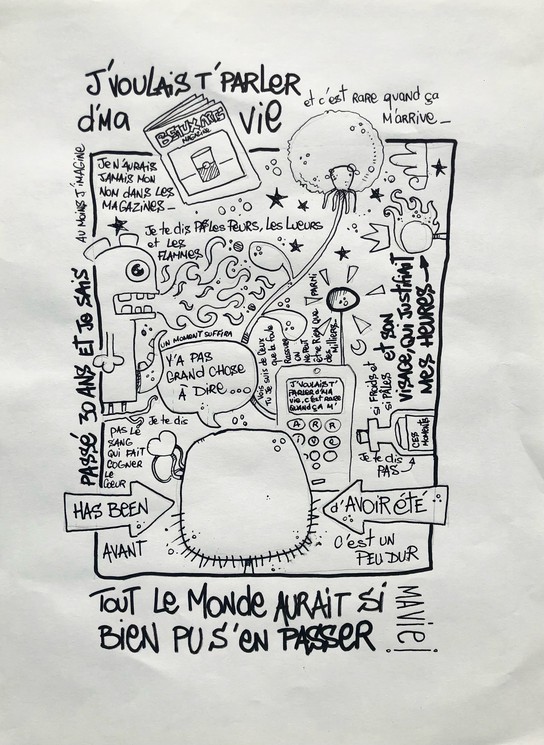 J'VOULAIS T'PARLER
d'MA
vie
et c'est RARE quand ça
M'ARRIVE_
AU MOINS J'IMAGINE
BEAUX ARTS
MAGAZINE
Je N'AURAIS
JAMAIS MON
NON dANS LES
MAGAZINES_
Je te dis PAS les PeURS, les LueURS
et LES
FLAMMES
PASSÉ 30 ANS ET JE SAIS
UN MOMENT SUFFIRA
Y'A PAS
GRAND CHOSE
À DIRE...
VOIS
TU JE SUIS DE CEUX
QUE LA FOULE
RASSURE
ON
NE PEUT
ÊTRE RIEN QUE
PARMI
DES
MILLIERS
J'VOULAIS T'
PARLER d'MA
vie, c'est RARE
QUAND ÇA M'
A R R
I V E
si FROIDS et
si PÂLES
et SON
VISAGE, QUI JUSTIFIAIT
MES HEURES
Je te dis
PAS LE
SANG
QUI FAIT
COGNER
LE
COEUR
CES
MOMENTS
Je te dis
PAS
HAS BEEN
d'AVOIR ÉTÉ
AVANT
C'EST UN
PEU DUR
TOUT LE MONDE AURAIT SI
BIEN PU S'EN PASSER
MA VIE!